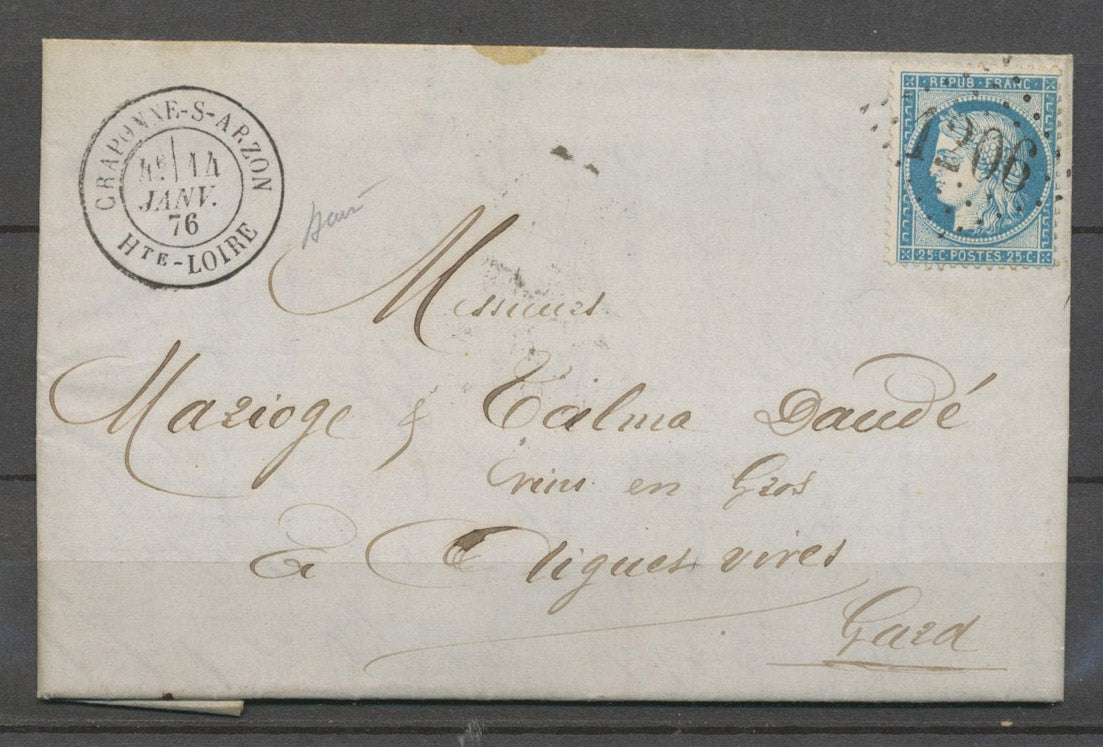 CRAPONNE-S-ARZON
4E 14
JANV.
76
HTE-LOIRE
REPUB·FRANC·
1206
25·C·POSTES·25·C
Messieurs
Mazioge & Talma Daudé
vins en Gros
à Aigues vives
Gard